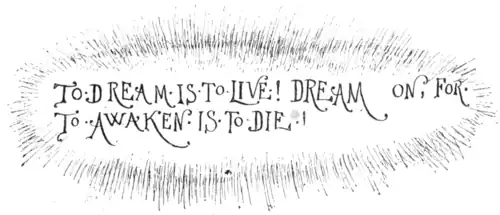 TO·DREAM·IS·TO·LIVE! DREAM ON, FOR·
TO··AWAKEN·IS·TO·DIE·!